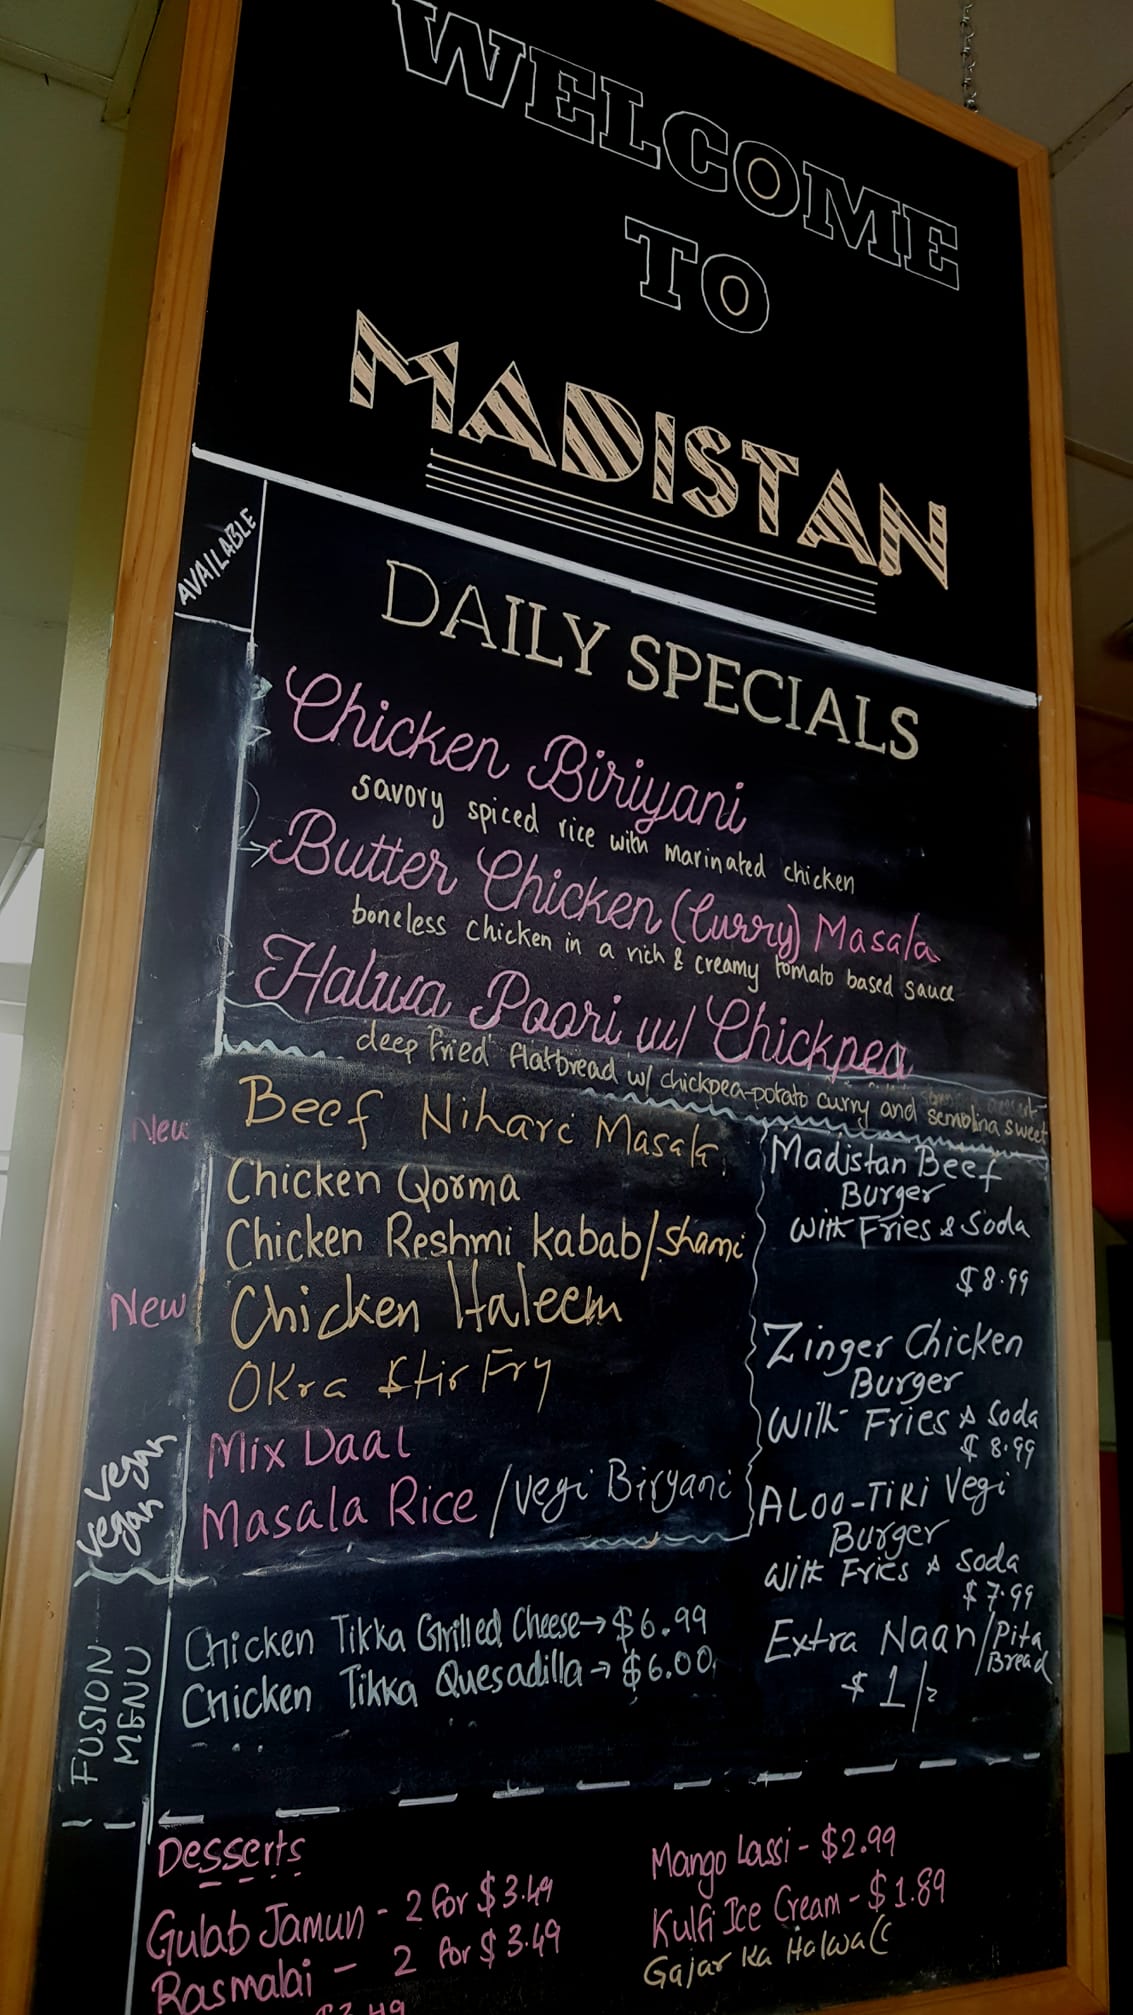 WELCOME
TO
MADISTAN
AVAILABLE
DAILY SPECIALS
Chicken Biriyani
savory spiced rice with marinated chicken
Butter Chicken (Curry) Masala
boneless chicken in a rich & creamy tomato based sauce
Halwa Poori w/ Chickpea
deep fried flatbread w/ chickpea-potato curry and semolina sweet
New
Beef Nihari Masala
Chicken Qorma
Chicken Reshmi Kabab/Shami
New
Chicken Haleem
Okra Stir Fry
Vegan
Mix Daal
Masala Rice /Vegi Biryani
Madistan Beef
Burger
With Fries & Soda
$8.99
Zinger Chicken
Burger
With Fries & Soda
$8.99
ALOO-TIKI Vegi
Burger
With Fries & Soda
$7.99
Extra Naan/Pita
Bread
$1/
FUSION
MENU
Chicken Tikka Grilled Cheese→$6.99
Chicken Tikka Quesadilla→$6.00
Desserts
Gulab Jamun - 2 for $3.49
Rasmalai - 2 for $3.49
Mango Lassi - $2.99
Kulfi Ice Cream - $1.89
Gajar Ka Halwa (